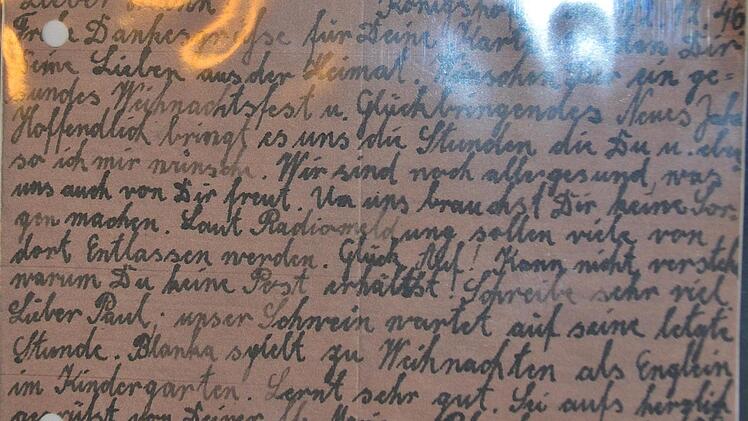 Lieber Mann Königsho 22.12.46
Frohe Dankesgrüße für Deine Karte den Dir
Deine Lieben aus der Heimat. Wünschen Dir ein ge=
sundes Weihnachtsfest u. Glückbringendes Neues Jahr
Hoffendlich bringt es uns die Stunden die Du u. eben
so ich mir wünsche. Wir sind noch alle gesund, was
uns auch von Dir freut. Um uns brauchst Dir keine Sor-
gen machen. Laut Radiomeldung sollen viele von
dort Entlassen werden. Glück Auf! Kann nicht versteh
warum Du keine Post erhältst. Schreibe sehr viel
Lieber Paul, unser Schwein wartet auf seine letzte
Stunde. Blanka spielt zu Weihnachten als Englein
im Kindergarten. Lernt sehr gut. Sei aufs herzlich
gegrüßt von Deiner